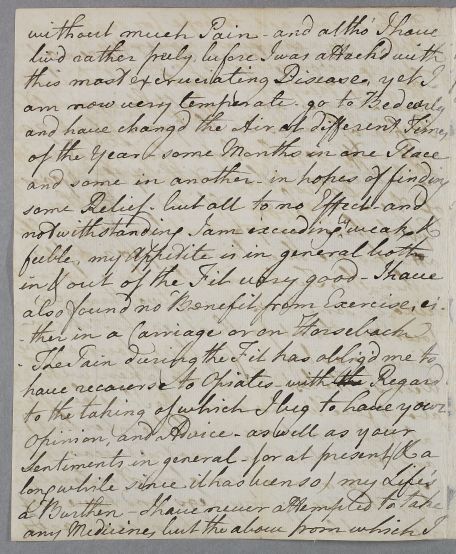 without much Pain - and altho' I have
liv'd rather freely before I was attack'd with
this most excruciating Disease, yet I
am now very temperate - go to Bed early
and have chang'd the Air at different Times
of the Year - some Months in one Place
and some in another - in hopes of finding
some Relief - but all to no Effect - and
notwithstanding I am exceedingly weak &
feeble, my Appetite is in general both
in & out of the Fit very good - I have
also found no Benefit from Exercise, ei-
-ther in a Carriage or on Horseback
- The Pain during the Fit has oblig'd me to
have recourse to Opiates - with Regard
to the taking of which I beg to have your
Opinion, and Advice - as well as your
Sentiments in general - for at present, & a
long while since it has been so, my Life's
a Burthen - I have never attempted to take
any Medicines but the above from which I